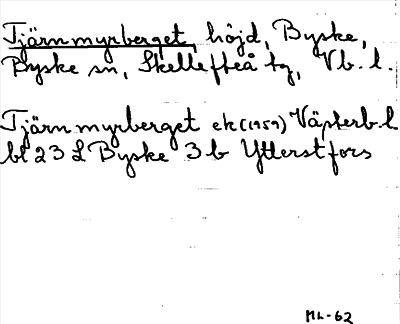 Tjärnmyrberget, höjd, Byske,
Byske sn, Skellefteå tg, Vb. l.
Tjärnmyrberget ek (1959) Västerb. l
bl 23 L Byske 3 b Ytterstfors
ML-62